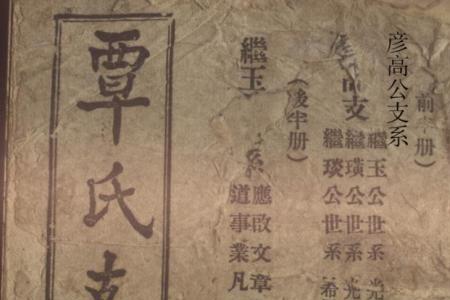 前 册）
彦高公支系
支
繼玉公世系 光
繼璜公世系 光
繼琰公世系 希
（後半册）
繼玉 系
應啟文章
道事業凡
覃氏支